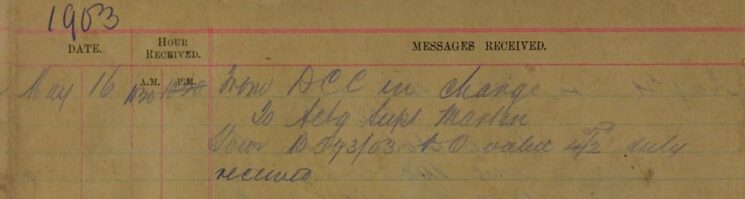 1903
DATE. HOUR RECEIVED. MESSAGES RECEIVED.
A.M. P.M.
May 16 1030 From DCC in charge
To Actg Supt
Your B543/03 & O valued duly
received